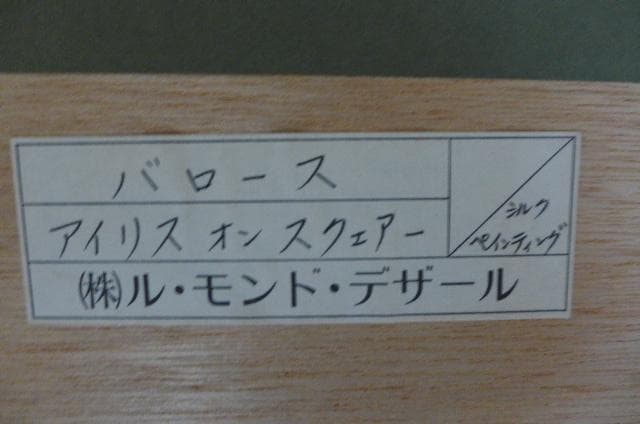 バロース
シルク
ペインティング
アイリス オン スクェアー
㈱ル・モンド・デザール